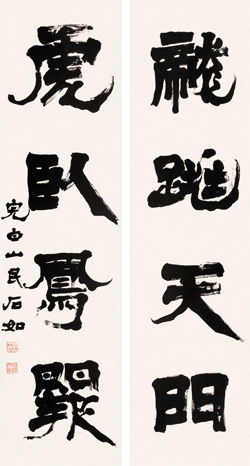 龍跳天門
虎臥鳳闕
完白山民石如